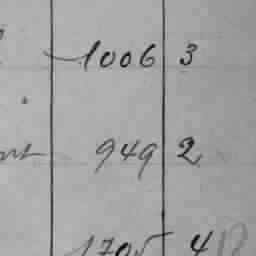 1006 3
949 2
1705 4